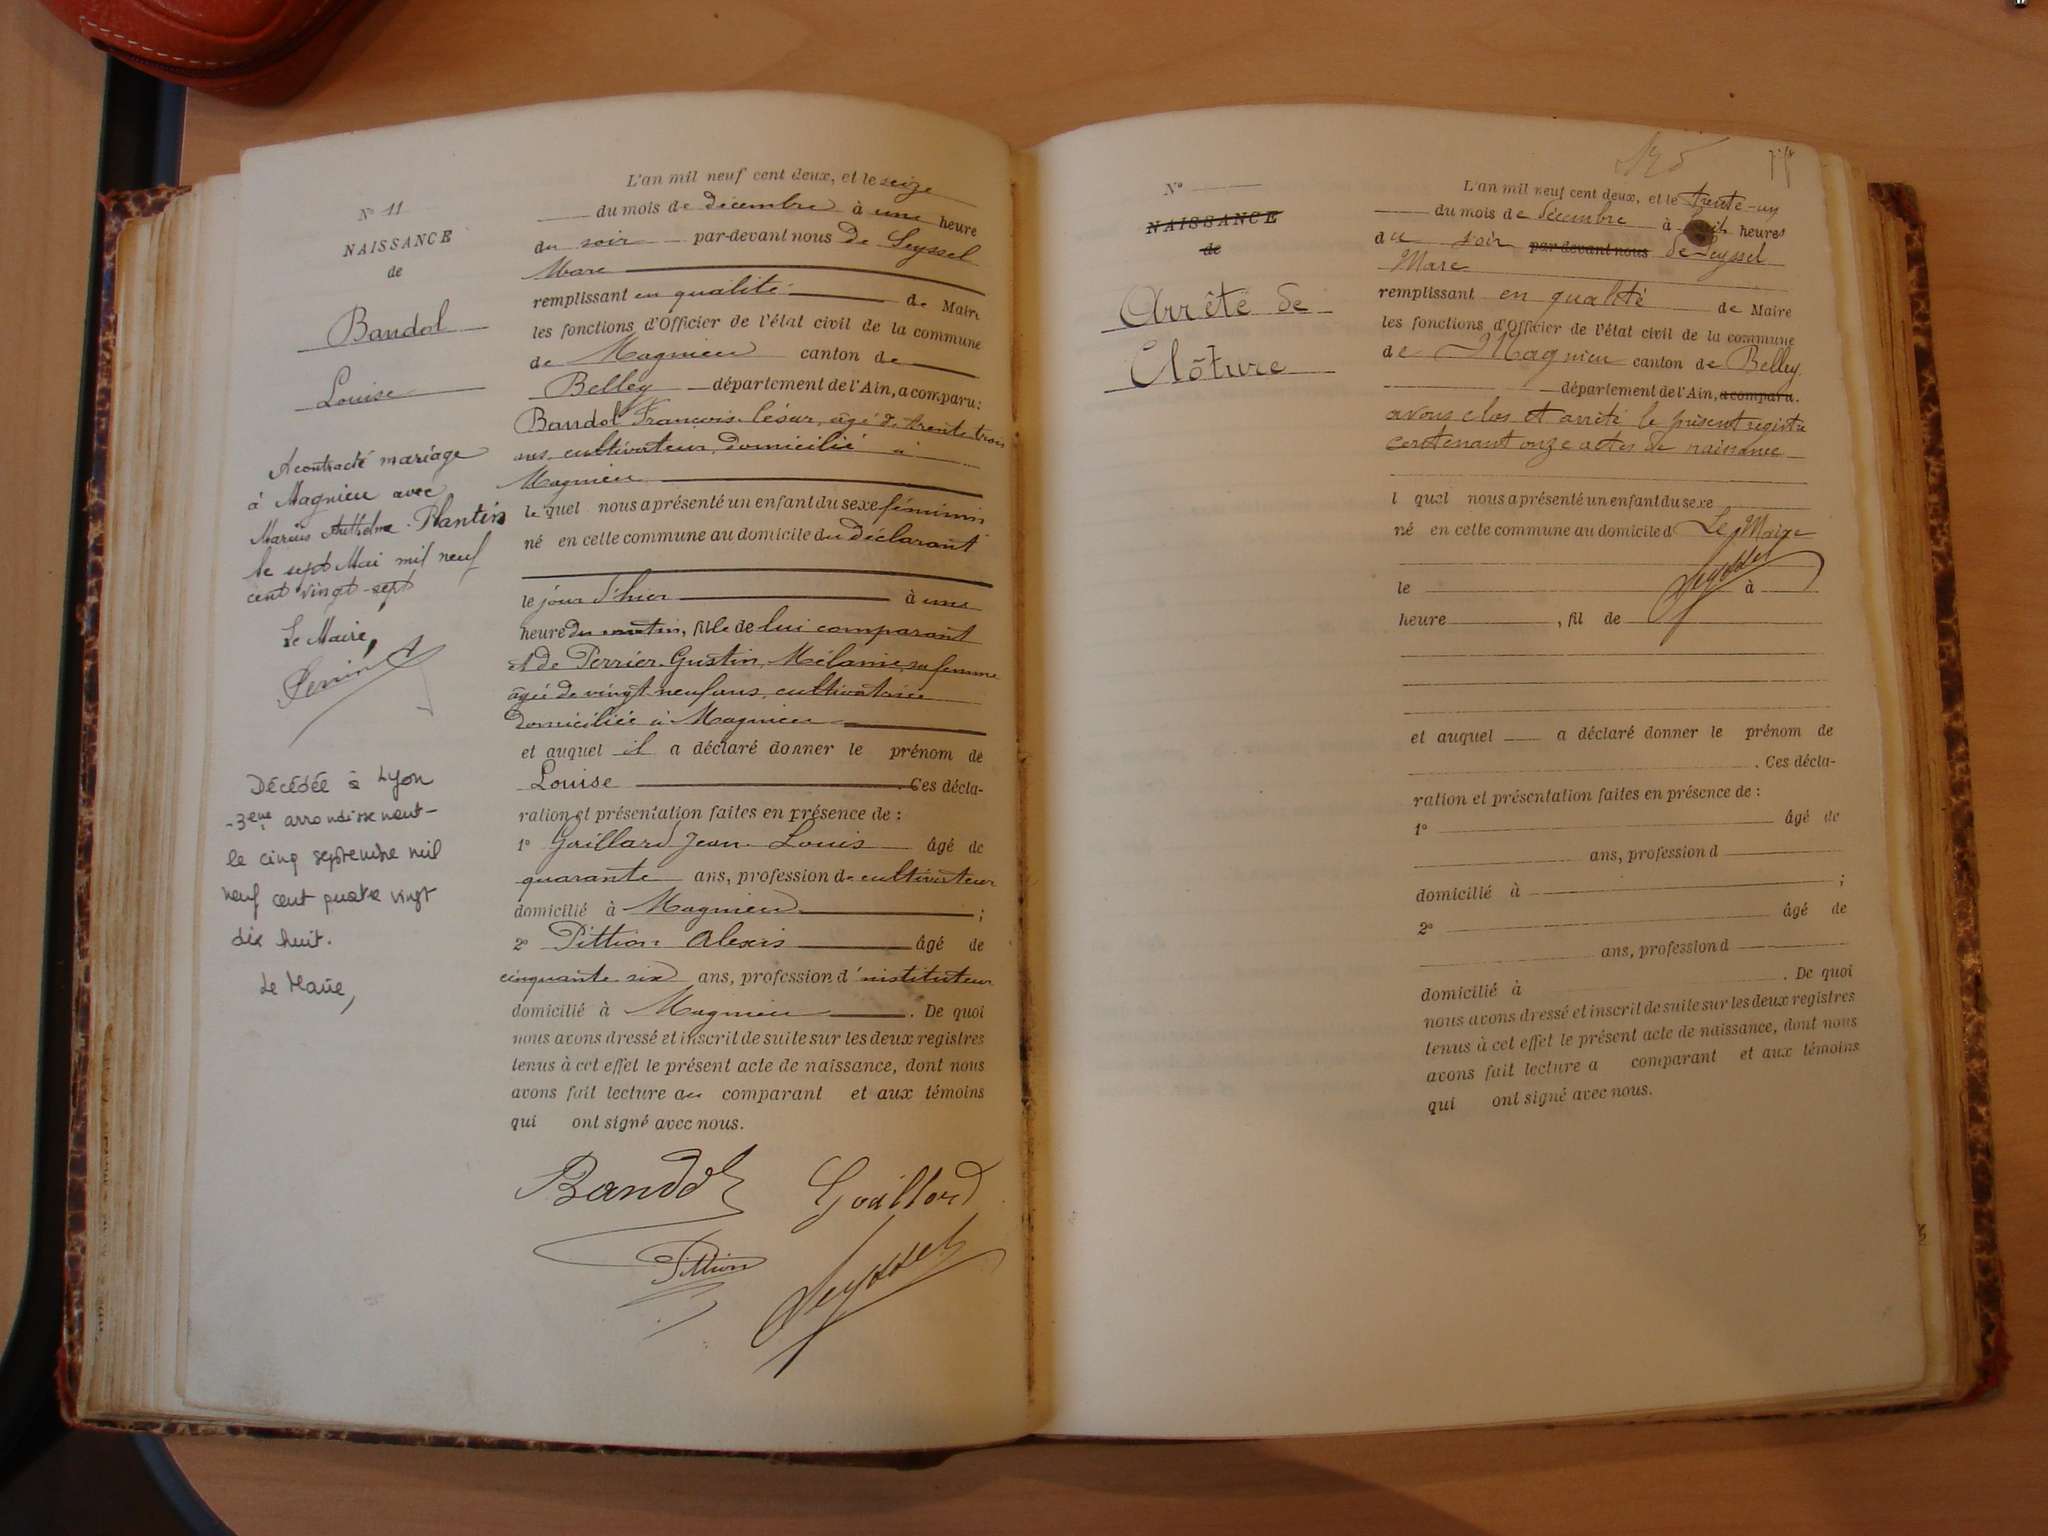 N° 11
NAISSANCE
de
Bandol
Louise
A contracté mariage
à Magnieu avec
Marius Anthelme Plantin
le sept Mai mil neuf
cent vingt-sept
Le Maire,
Perrin
Décédée à Lyon
-3ème arrondissement-
le cinq septembre mil
neuf cent quatre vingt
dix huit.
Le Maire,
L'an mil neuf cent deux, et le seize
du mois de décembre à une heure
du soir par-devant nous De Seyssel
Marc
remplissant en qualité de Maire
les fonctions d'Officier de l'état civil de la commune
de Magnieu canton de
Belley département de l'Ain, a comparu:
Bandol François César, âgé de trente trois
ans, cultivateur, domicilié à
Magnieu
lequel nous a présenté un enfant du sexe féminin
né en cette commune au domicile du déclarant
le jour d'hier à une
heure du matin, fille de lui comparant
et de Perrier Gustin, Mélanie, sa femme
âgée de vingt neuf ans, cultivatrice
domiciliée à Magnieu
et auquel il a déclaré donner le prénom de
Louise . Ces décla-
ration et présentation faites en présence de :
1° Gaillard Jean-Louis âgé de
quarante ans, profession de cultivateur
domicilié à Magnieu ;
2° Pittion Alexis âgé de
cinquante six ans, profession d'instituteur
domicilié à Magnieu . De quoi
nous avons dressé et inscrit de suite sur les deux registres
tenus à cet effet le présent acte de naissance, dont nous
avons fait lecture au comparant et aux témoins
qui ont signé avec nous.
Bandol Gaillard
Pittion Seyssel
N°
NAISSANCE
de
Arrêté de
Clôture
L'an mil neuf cent deux, et le trente-un
du mois de décembre à huit heures
du soir par-devant nous de Seyssel
Marc
remplissant en qualité de Maire
les fonctions d'Officier de l'état civil de la commune
de Magnieu canton de Belley
département de l'Ain, a comparu.
avons clos et arrêté le présent registre
contenant onze actes de naissance
l quel nous a présenté un enfant du sexe
né en cette commune au domicile d Le Maire
Seyssel
le à
heure , fil de
et auquel a déclaré donner le prénom de
. Ces décla-
ration et présentation faites en présence de :
1° âgé de
ans, profession d
domicilié à ;
2° âgé de
ans, profession d
domicilié à . De quoi
nous avons dressé et inscrit de suite sur les deux registres
tenus à cet effet le présent acte de naissance, dont nous
avons fait lecture a comparant et aux témoins
qui ont signé avec nous.